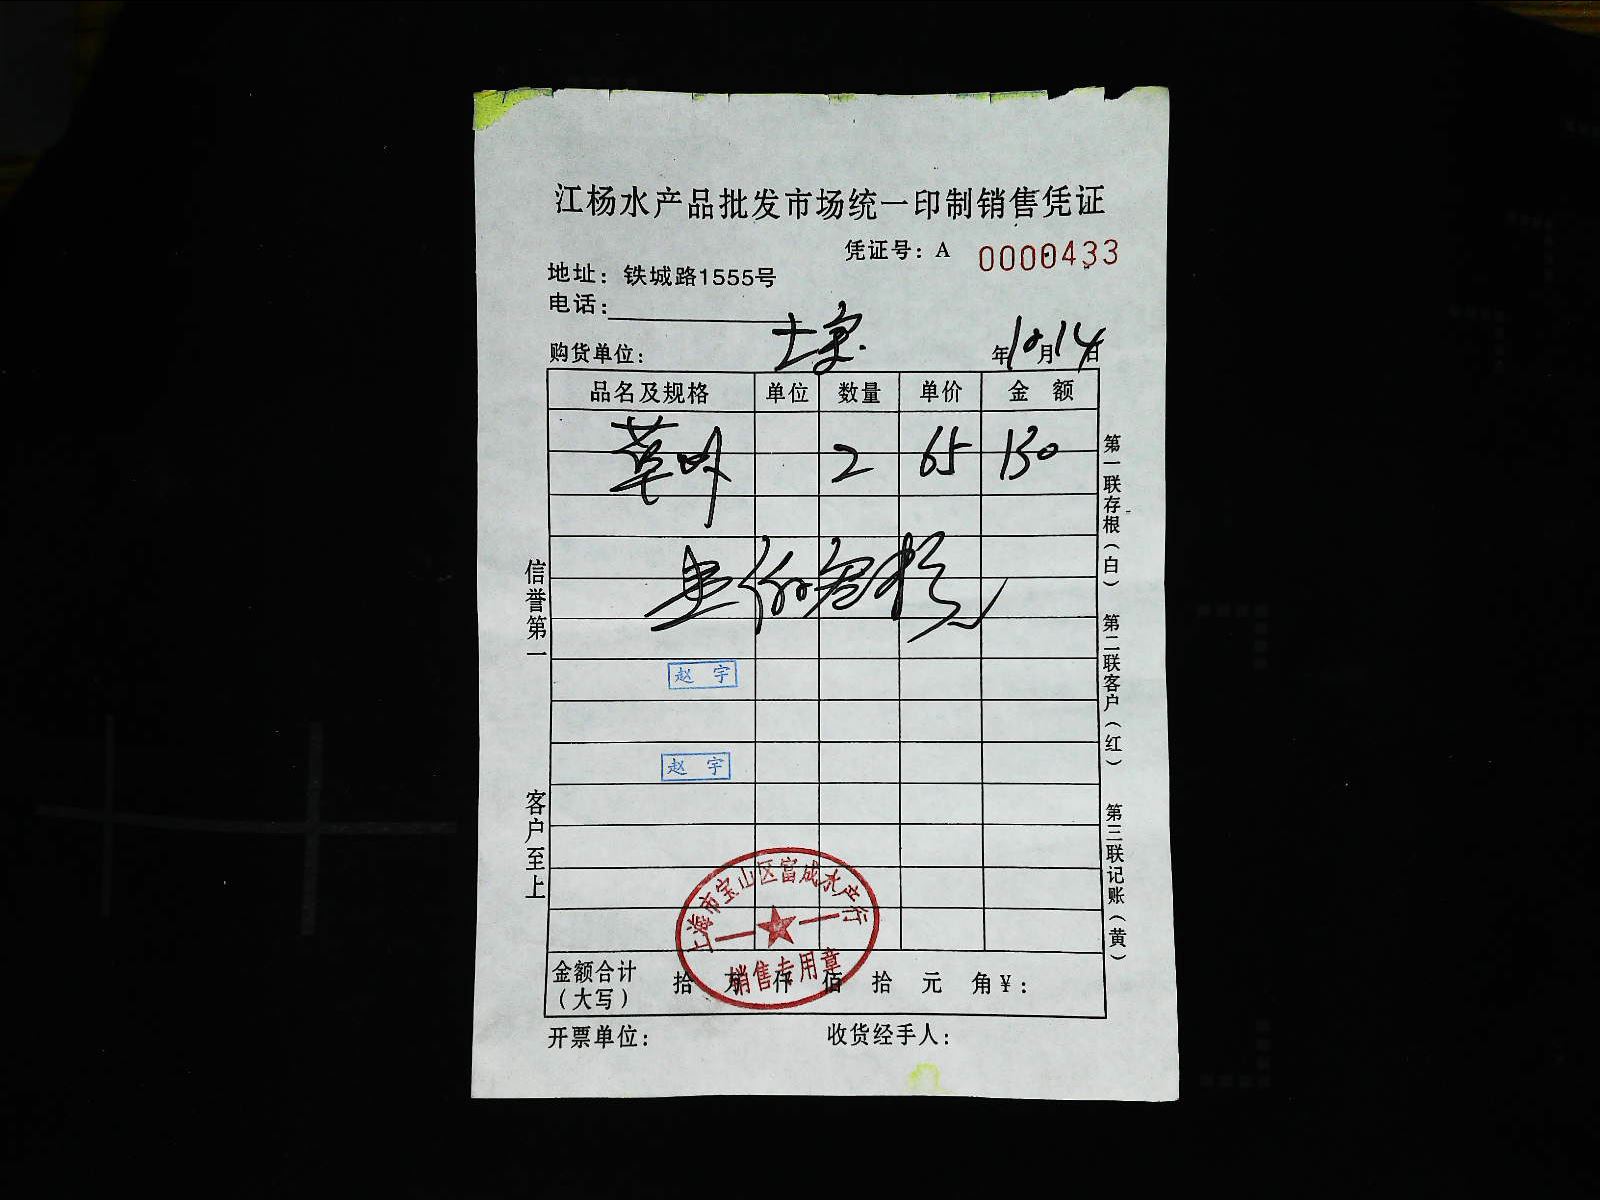 江杨水产品批发市场统一印制销售凭证
凭证号：A 0000433
地址：铁城路1555号
电话：
购货单位： 年10月14日
品名及规格 单位 数量 单价 金 额
草 2 65 130
赵 宇
赵 宇
上海市宝山区富成水产行
销售专用章
金额合计（大写） 拾 万 仟 佰 拾 元 角￥：
开票单位： 收货经手人：
信誉第一
客户至上
第一联存根（白） 第二联客户（红） 第三联记账（黄）